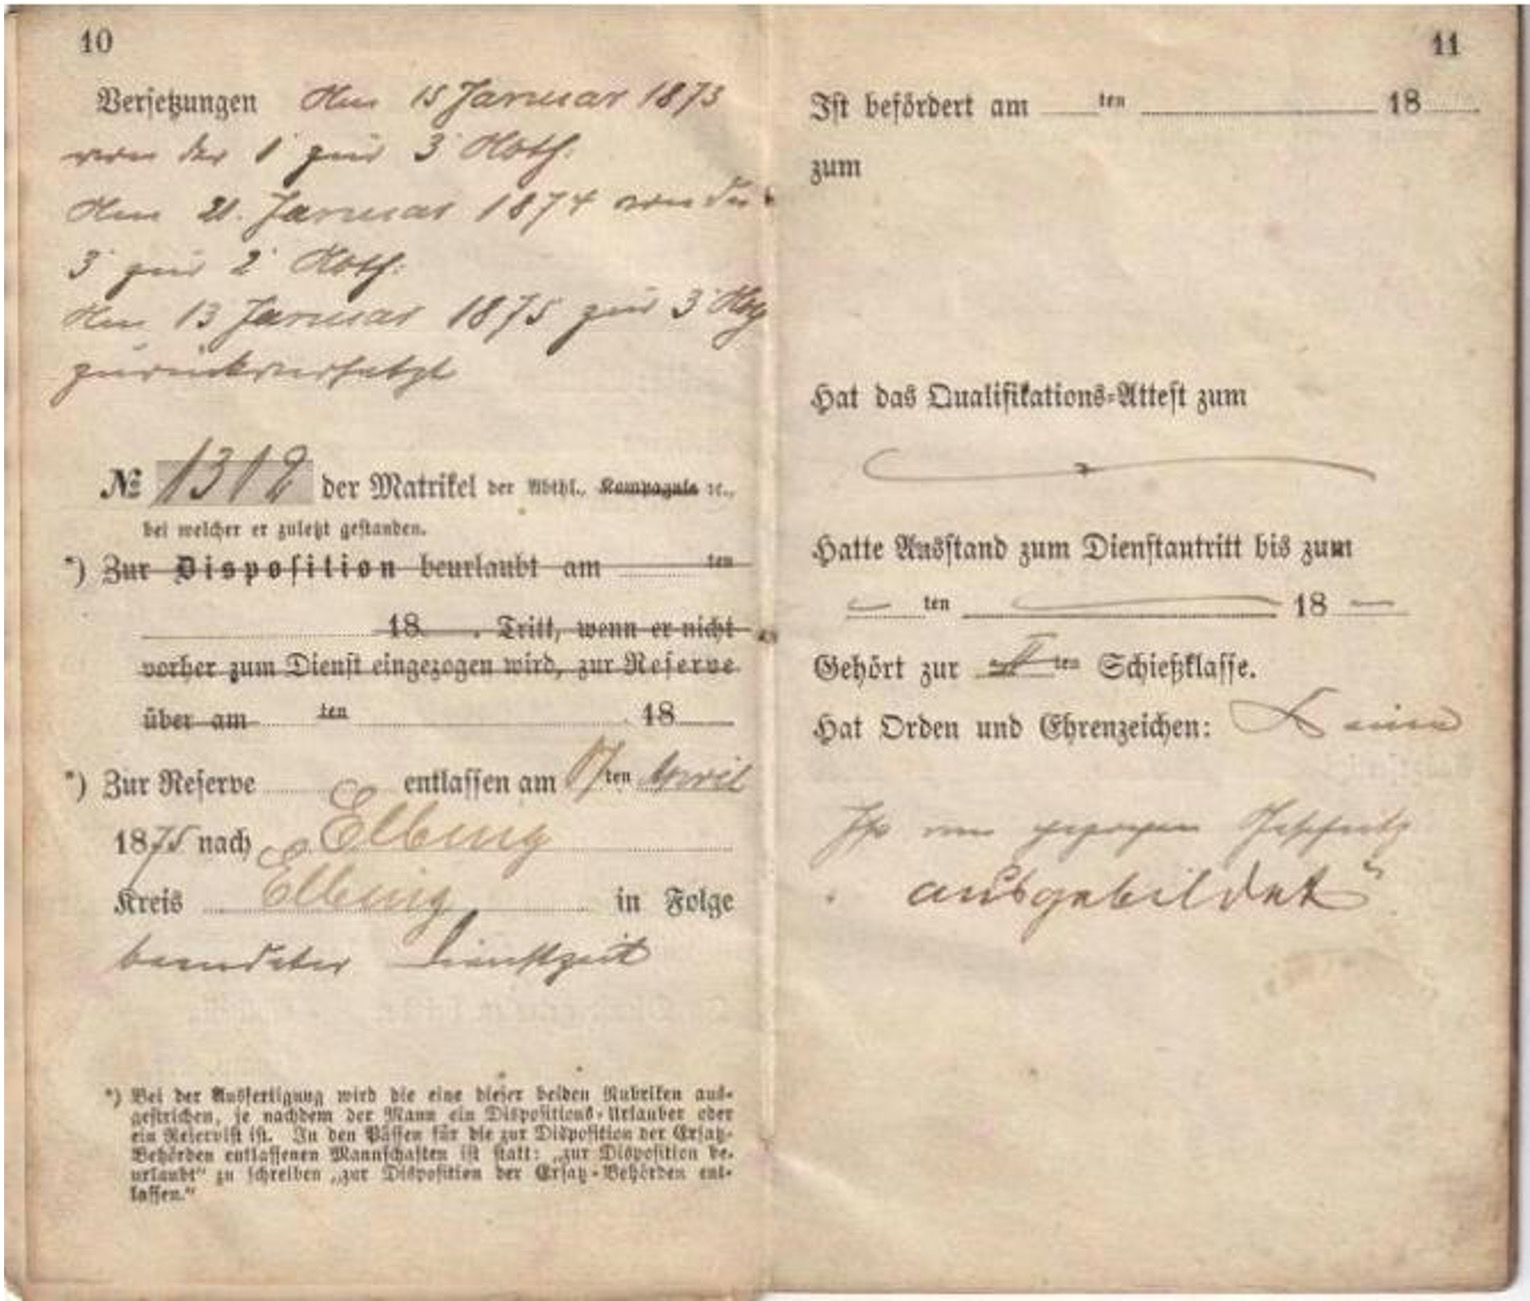 10
Versetzungen Am 15 Januar 1873
von der 1 zur 3 Abth.
Am 21. Januar 1874 von der
3 zur 2 Abth:
Am 13 Januar 1875 zur 3 Abth
zurückversetzt
№ 1312 der Matrikel der Abthl., Kompagnie ꝛc.,
bei welcher er zuletzt gestanden.
*) Zur Disposition beurlaubt am ten
18 . Tritt, wenn er nicht
vorher zum Dienst eingezogen wird, zur Reserve
über am ten 18
*) Zur Reserve entlassen am ten April
1875 nach Elbing
Kreis Elbing in Folge
beendeter Dienstzeit
*) Bei der Ausfertigung wird die eine dieser beiden Rubriken aus-
gestrichen, je nachdem der Mann ein Dispositions-Urlauber oder
ein Reservist ist. In den Pässen für die zur Disposition der Ersatz-
Behörden entlassenen Mannschaften ist statt: „zur Disposition be-
urlaubt“ zu schreiben „zur Disposition der Ersatz-Behörden ent-
lassen.“
11
Ist befördert am ten 18
zum
Hat das Qualifikations-Attest zum
Hatte Ausstand zum Dienstantritt bis zum
ten 18
Gehört zur ten Schießklasse.
Hat Orden und Ehrenzeichen: Keine
Ist am gezogenen Geschütz
ausgebildet